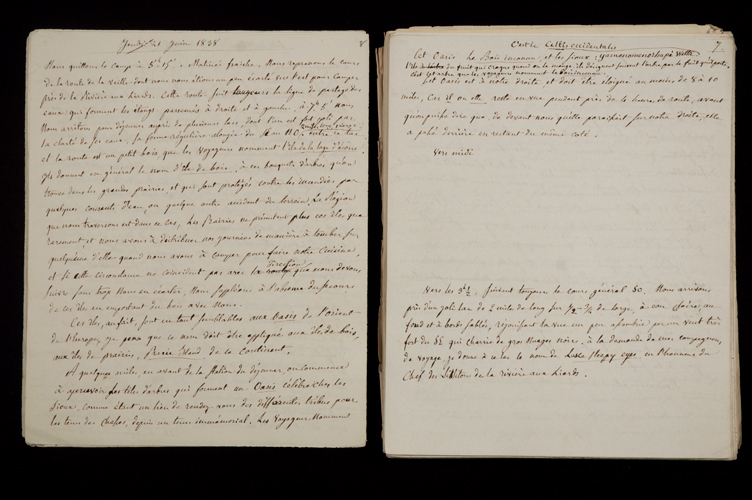 Jeudi 21 Juin 1838
8
Nous quittons le Camp à 5h 15'. Matinée fraiche. Nous reprenons le cours
de la route de la veille dont nous nous étions un peu écartés vers l'est pour camper
près de la Rivière aux Liards. Cette route suit toujours la ligne de partage des
eaux qui forment les étangs parsemés à droite et à gauche. à 7h 5' nous
Nous arrêtons pour déjeuner auprès de plusieurs lacs, dont l'un est fort joli par
la clarté de ses eaux, sa forme régulière
et la route est un petit bois que les Voyageurs nomment l'ile de
Ils donnent en général le nom d'Ile de bois, à ces bouquets d'arbres qu'on
trouve dans les grandes prairies et qui sont protégés contre les incendies par
quelques courants d'eau, ou quelque autre accident de terrain. La Région
que nous traversons est dans ce cas. Les Prairies ne présentent plus ces iles que
rarement et nous avons à distribuer nos journées de manière à tomber sur
quelqu'une d'elles quand nous avons à camper pour faire notre Cuisine,
et si cette circonstance ne coincidait pas avec la direction que nous devons
suivre sans trop nous en écarter, Nous suppléons à l'absence du secours
de ces iles en emportant du bois avec Nous.
Ces iles, au fait, sont en tout semblables aux Oasis de l'Orient
de l'Europe, je pense que ce nom doit être appliqué aux iles de bois,
aux iles de prairies, Prairie Island de ce Continent.
A quelques miles en avant de la station du déjeuner, on commence
à apercevoir les têtes d'arbres qui forment un Oasis célèbre chez les
Sioux, comme étant un lieu de rendez vous des différentes tribus pour
les tems des Chasses, depuis un tems immémorial. Les Voyageurs nomment
7
C'est le Celtis occidentalis
Cet Oasis le Bois inconnu, et les Sioux
du fruit qui craque quand on le mange
C'est cet arbre que les voyageurs nomment le bois inconnu.
Cet Oasis est à notre droite et doit être éloigné au moins de 8 à 10
miles, Car il reste en vue pendant près de 4 heures de route, avant
qu'on puisse dire que, de devant nous qu'elle paraissait sur notre droite, elle
a passé derrière en restant du même coté.
Vers midi
Vers les 3h ½. Suivant toujours le cours général SO. Nous arrivons
près d'un joli lac de 2 mile de long sur ½ ¾ de large, à eau claire, au
fond et à bords sablés, réjouissant la vue
fort du SE qui charie de gros nuages noirs. à la demande de mes compagnons
de voyage, je donne à ce lac le nom de Lake Sleepy eyes, en l'honneur du
Chef des Sissitons de la Rivière aux Liards.